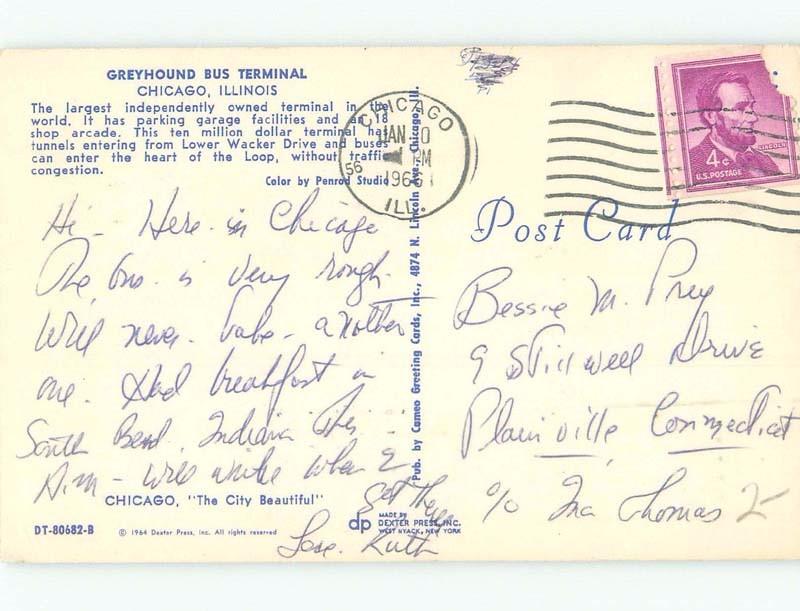 GREYHOUND BUS TERMINAL
CHICAGO, ILLINOIS
The largest independently owned terminal in the
world. It has parking garage facilities and an 18
shop arcade. This ten million dollar terminal has
tunnels entering from Lower Wacker Drive and buses
can enter the heart of the Loop, without traffic
congestion.
Color by Penrod Studio
Hi - Here in Chicago
The bus is very rough
Will never take another
one. Had breakfast in
South Bend, Indiana this
A.M - will write when I
get there
Love. Ruth
CHICAGO, "The City Beautiful"
DT-80682-B
© 1964 Dexter Press, Inc. All rights reserved
dp
MADE BY
DEXTER PRESS, INC.
WEST NYACK, NEW YORK
Pub. by Cameo Greeting Cards, Inc., 4874 N. Lincoln Ave., Chicago, Ill.
CHICAGO
JAN
PM
196
ILL.
56
4¢
LINCOLN
U.S. POSTAGE
Post Card
Bessie M. Prey
9 Stillwell Drive
Plainville Connecticut
c/o Ina Thomas